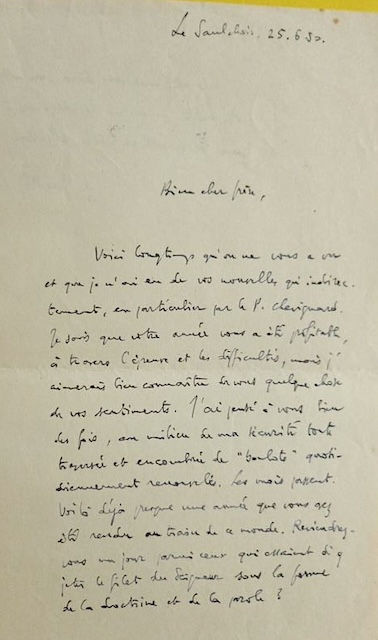 Le Saulchoir, 25.6.50.
Bien cher frère,
Voici longtemps qu'on ne vous a vu
et que je n'ai eu de vos nouvelles qu'indirec-
tement, en particulier par le P. Chevignard.
Je sais que votre année vous a été profitable,
à travers l'épreuve et les difficultés, mais j'
aimerais bien connaître de vous quelque chose
de vos sentiments. J'ai pensé à vous bien
des fois, au milieu de ma sécurité toute
traversée et encombrée de "boulots" quoti-
diennement renouvelés. Les mois passent.
Voilà déjà presque une année que vous avez
été rendu au train de ce monde. Reviendrez-
vous un jour parmi ceux qui essaient d'y
jeter le filet du Seigneur sous la forme
de la doctrine et de la parole ?